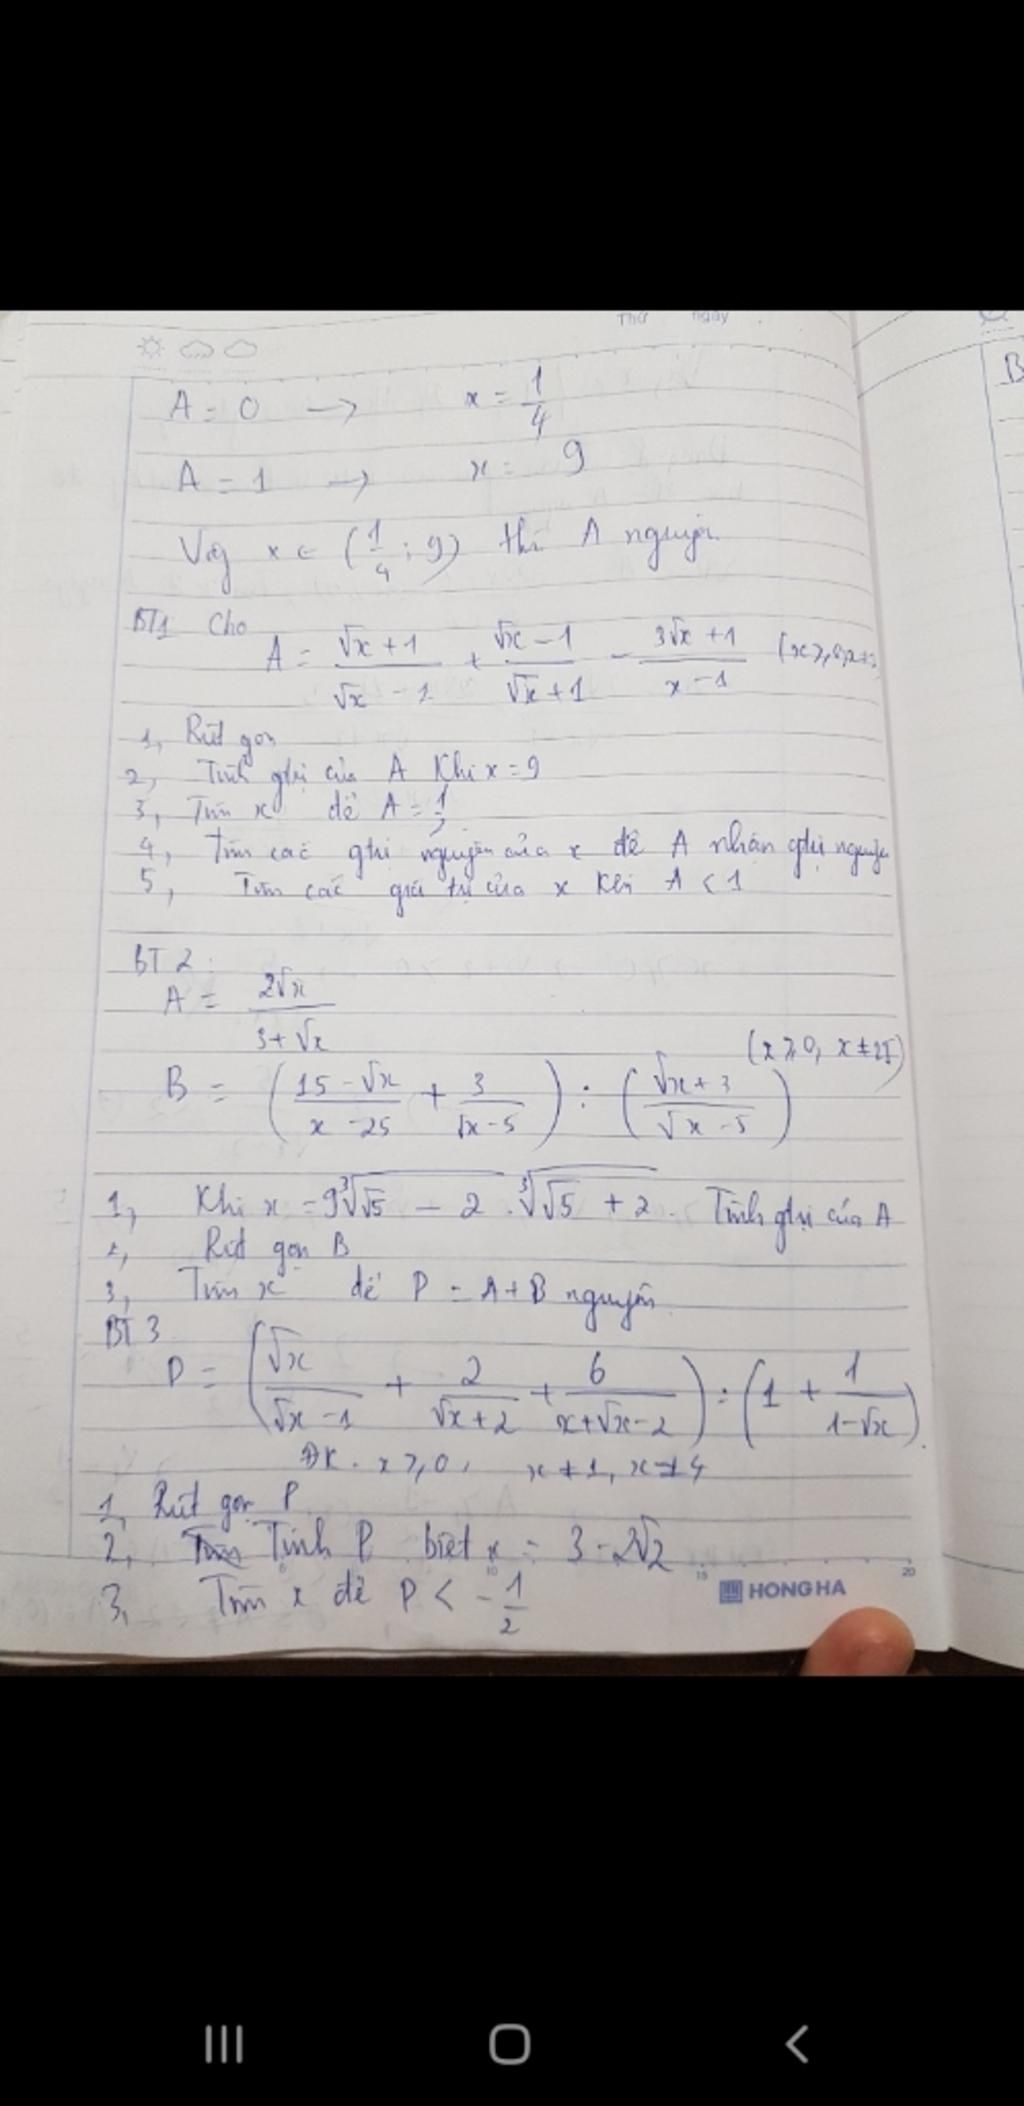 Thứ ngày
A = 0 → x = 1/4
B
A = 1 → x = 9
Vậy x ∈ (1/4 ; 9) thì A nguyên
BT1 Cho
A = (√x + 1)/(√x - 1) + (√x - 1)/(√x + 1) - (3√x + 1)/(x - 1)
1, Rút gọn
2, Tính gtrị của A Khi x = 9
3, Tìm x để A = 1/2
4, Tìm các gtrị nguyên của x để A nhận gtrị nguyên
5, Tìm các giá trị của x khi A < 1
BT 2 :
A = 2√x/(3 + √x)
(x ≥ 0, x ≠ 25)
B = ((15 - √x)/(x - 25) + 3/(√x - 5)) : ((√x + 3)/(√x - 5))
1, Khi x = 9∛(√5 - 2) . ∛(√5 + 2) . Tính gtrị của A
2, Rút gọn B
3, Tìm x để P = A + B nguyên
BT 3
P = (√x/(√x - 1) + 2/(√x + 2) + 6/(x + √x - 2)) : (1 + 1/(1 - √x))
ĐK . x ≥ 0, x ≠ 1, x ≠ 4
1, Rút gọn P
2, Tính P biết x = 3 - 2√2
3, Tìm x để P < -1/2
HONG HA